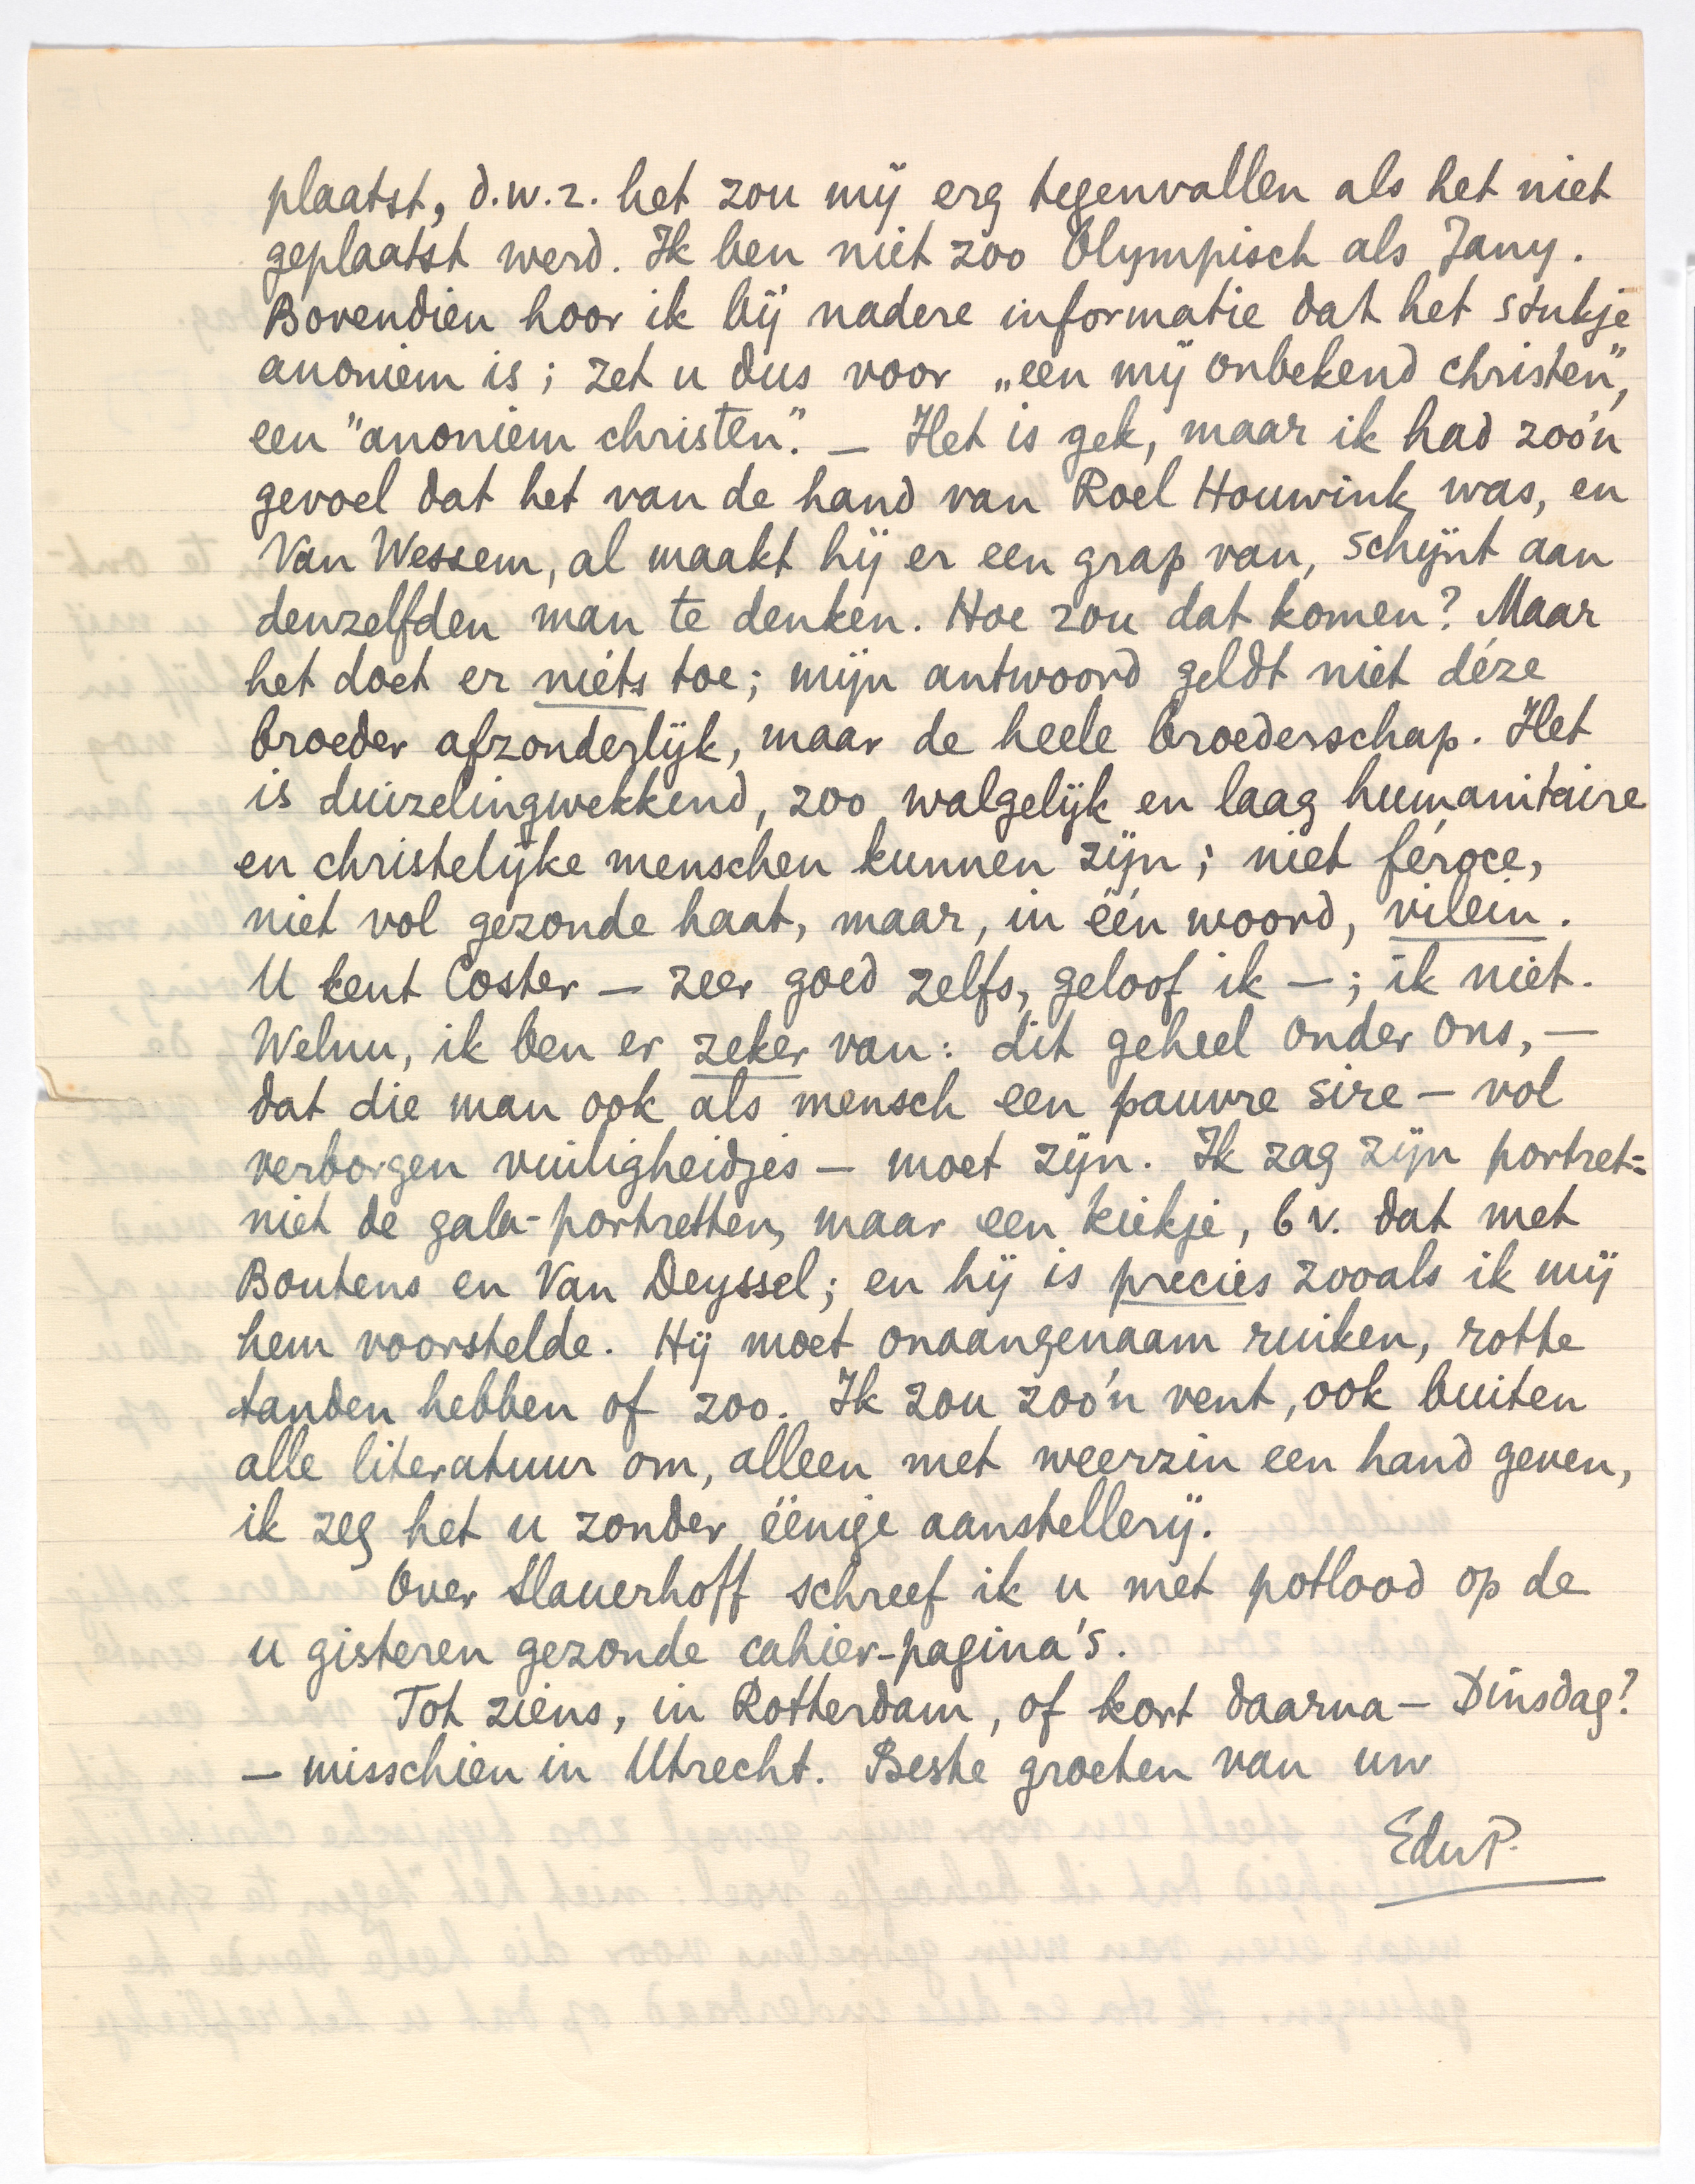 plaatst, d.w.z. het zou mij erg tegenvallen als het niet
geplaatst werd. Ik ben niet zoo Olympisch als Jany.
Bovendien hoor ik bij nadere informatie dat het stukje
anoniem is; zet u dus voor „een mij onbekend christen",
een "anoniem christen". — Het is gek, maar ik had zoo'n
gevoel dat het van de hand van Roel Houwink was, en
Van Wessem, al maakt hij er een grap van, schijnt aan
denzelfden man te denken. Hoe zou dat komen? Maar
het doet er niéts toe; mijn antwoord geldt niet déze
broeder afzonderlijk, maar de heele broederschap. Het
is duizelingwekkend, zoo walgelijk en laag humanitaire
en christelijke menschen kunnen zijn; niet féroce,
niet vol gezonde haat, maar, in één woord, vilein.
U kent Coster — zeer goed zelfs, geloof ik —; ik niet.
Welnu, ik ben er zeker van: dit geheel onder ons, —
dat die man ook als mensch een pauvre sire — vol
verborgen vuiligheidjes — moet zijn. Ik zag zijn portret:
niet de gala-portretten, maar een kiekje, b v. dat met
Boutens en Van Deyssel; en hij is precies zooals ik mij
hem voorstelde. Hij moet onaangenaam ruiken, rotte
tanden hebben of zoo. Ik zou zoo'n vent, ook buiten
alle literatuur om, alleen met weerzin een hand geven,
ik zeg het u zonder éénige aanstellerij.
Over Slauerhoff schreef ik u met potlood op de
u gisteren gezonde cahier-pagina's.
Tot ziens, in Rotterdam, of kort daarna — Dinsdag?
— misschien in Utrecht. Beste groeten van uw
EduP.